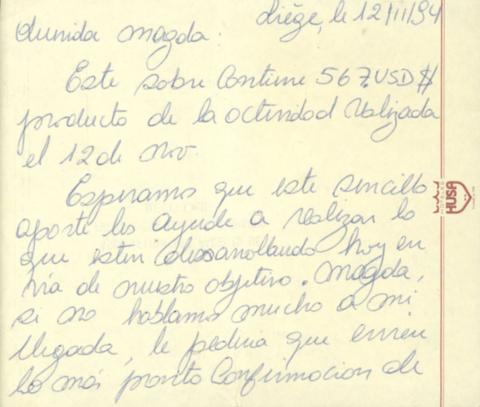 Liège, le 12/11/94
Querida Magda.
Este sobre Contiene 567.USD$
producto de la actividad realizada
el 12 de Nov.
Esperamos que este sencillo
aporte les ayude a realizar lo
que estén desarrollando hoy en
vía de nuestro objetivo. Magda,
si no hablamos mucho a mi
llegada, le pediria que envien
lo más pronto Confirmacion de
HUSA